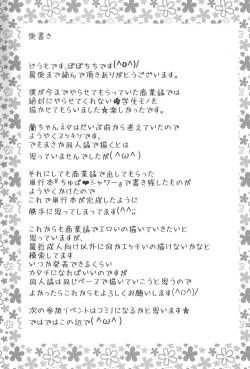 後書き
どうもです、ぽぽちちです(^o^)/
最後まで読んで頂きありがとうございます。
僕が今までやらせてもらっていた商業誌では
絶対にやらせてくれない学生モノを
描かせてもらいました★楽しかったです。
蘭ちゃんネタはだいぶ前から考えていたので
ようやくスッキリです、
でもまさか同人誌で描くとは
思っていませんでしたが(^ω^)
それにしても商業誌で出してもらった
単行本『ちゅぱ♥シャワー』で書き残したものが
ようやくかけたので
これで単行本が完成したように
勝手に思ってしまってます(^^;;
これからも商業誌でエロいの描いていきたいと
思っていますが、
最近成人向け以外に何かエッチいの描けないかなと
模索してます
いつか発表できるくらい
カタチになればいいのですが
同人誌は同じペースで描いていこうと思うので
よかったらこれからもよろしくお願いします(^o^)/
次の参加イベントはコミ1になるかと思います★
ではではこの辺で(^ω^)